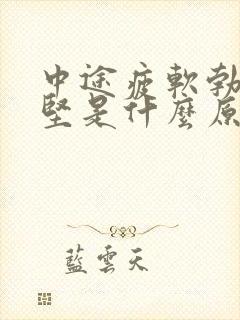 中途疲軟勃
堅是什麼原
藍雲天